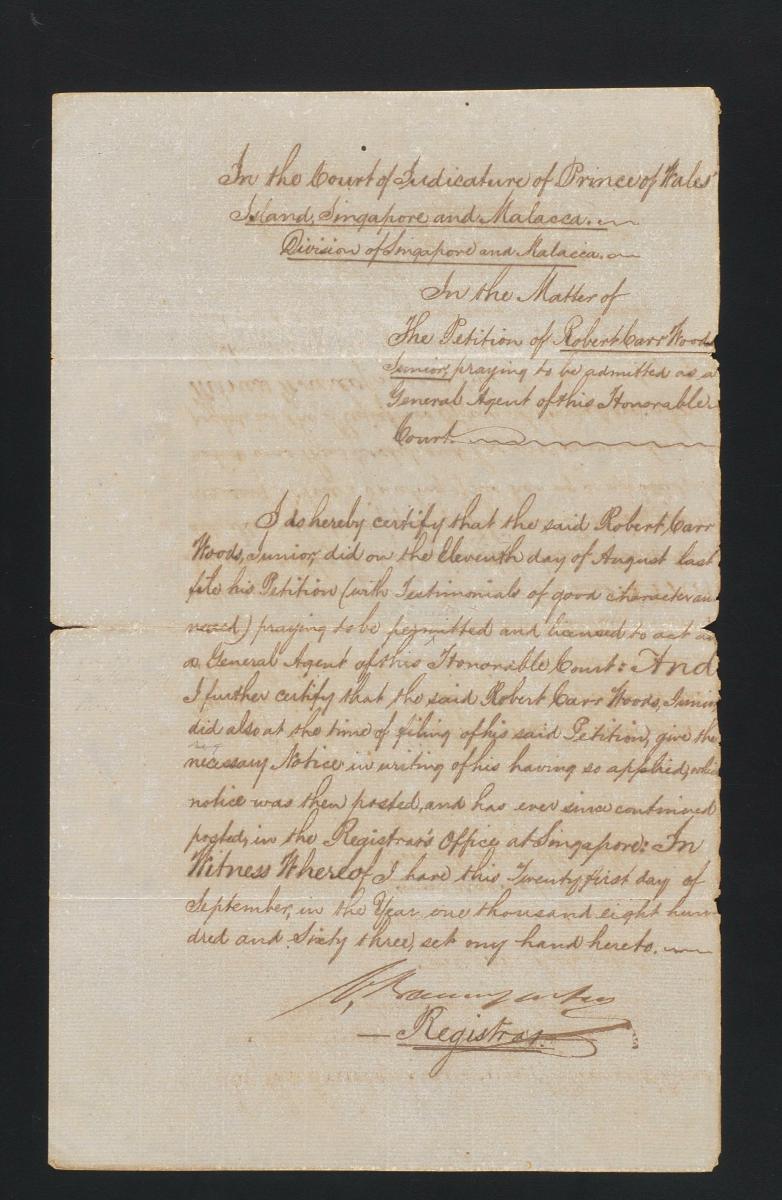 In the Court of Judicature of Prince of Wales'
Island, Singapore and Malacca.
Division of Singapore and Malacca.
In the Matter of
The Petition of Robert Carr Woods
Junior, praying to be admitted as a
General Agent of this Honorable
Court.
I do hereby certify that the said Robert Carr
Woods, Junior, did on the Eleventh day of August last
file his Petition (with Testimonials of good character an
nexed) praying to be permitted and licensed to act as
a General Agent of this Honorable Court: And
I further certify that the said Robert Carr Woods, Junior
did also at the time of filing of his said Petition, give the
necessary Notice in writing of his having so applied, which
notice was then posted, and has ever since continued
posted, in the Registrar's Office at Singapore: In
Witness Whereof I have this Twenty first day of
September, in the Year one thousand eight hun
dred and Sixty three, set my hand hereto.
Registrar.